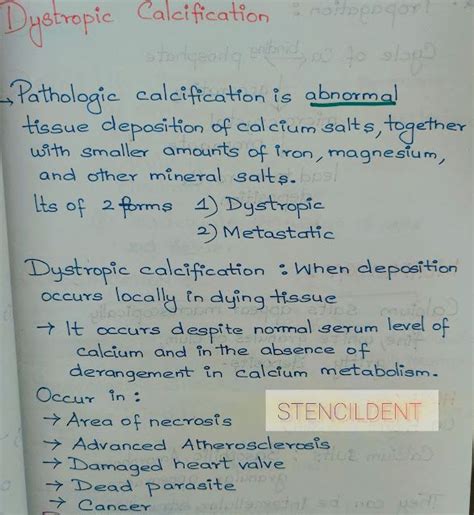 Dystropic Calcification
→ Pathologic calcification is abnormal
tissue deposition of calcium salts, together
with smaller amounts of iron, magnesium,
and other mineral salts.
Its of 2 forms 1) Dystropic
2) Metastatic
Dystropic calcification : When deposition
occurs locally in dying tissue
→ It occurs despite normal serum level of
calcium and in the absence of
derangement in calcium metabolism.
Occur in :
→ Area of necrosis
STENCILDENT
→ Advanced Atherosclerosis
→ Damaged heart valve
→ Dead parasite
→ Cancer